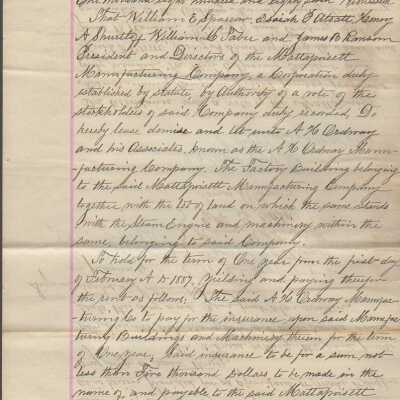 One thousand eight hundred and eighty seven Witnesseth
That William E Sparrow, Isaiah P Atsatt Henry
A Shurtleff William C Tabor and James B Ransom
President and Directors of the Mattapoisett
Manufacturing Company, a Corporation duly
established by statute, by Authority of a vote of the
stockholders of said Company duly recorded, Do
hereby lease demise and let unto A H Ordway
and his Associates, known as the A H Ordway Manu-
facturing Company. The Factory Building belonging
to the said Mattapoisett Manufacturing Company
together with the lot of land on which the same stands
with the Steam Engine and machinery within the
same belonging to said Company.
To Hold for the term of One year from the first day
of February A D 1887, yielding and paying therefor
the rent as follows, The said A H Ordway Manufac-
turing Co to pay for the insurance upon said Manufac-
turing Buildings and Machinery therein for the term
of One year, Said insurance to be for a sum not
less than Five thousand Dollars to be made in the
name of, and payable to the said Mattapoisett